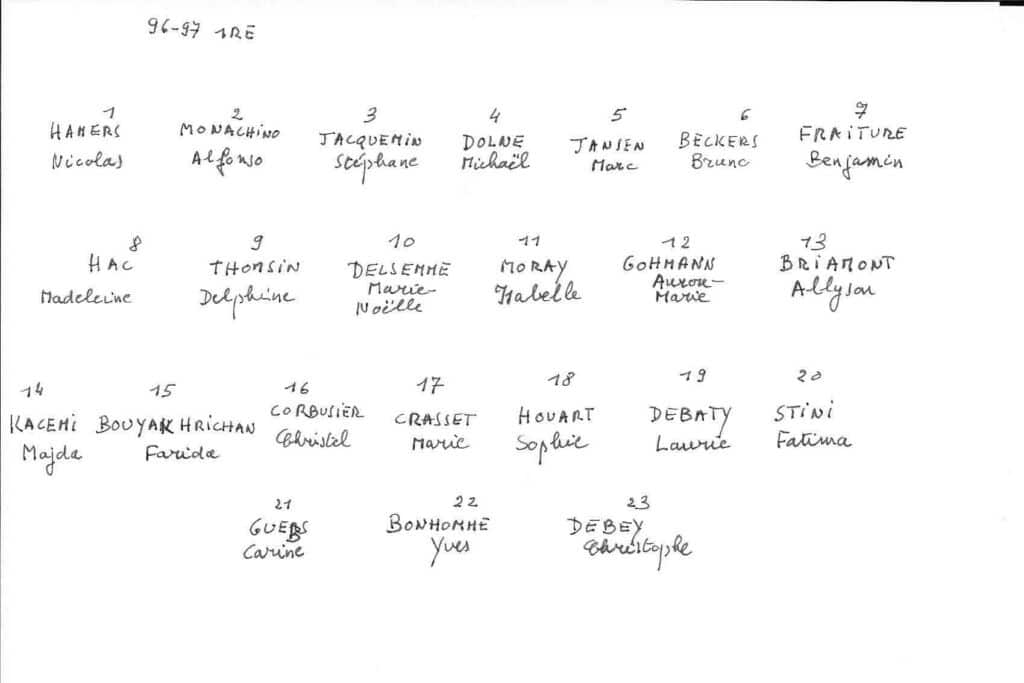 96-97 1RE
1 2 3 4 5 6 7
HAMERS MONACHINO JACQUEMIN DOLNE JANSEN BECKERS FRAITURE
Nicolas Alfonso Stéphane Michaël Marc Bruno Benjamin
8 9 10 11 12 13
HAC THOMSIN DELSEMME MORAY GOHMANN BRIAMONT
Madeleine Delphine Marie- Isabelle Ally­son
Noëlle Marie
14 15 16 17 18 19 20
KACEMI BOUYAKHRICHAN CORBUSIER CRASSET HOUART DEBATY STINI
Majda Farida Christel Marie Sophie Laurie Fatima
21 22 23
BONHOMME DEBEY
Carine Yves Christophe